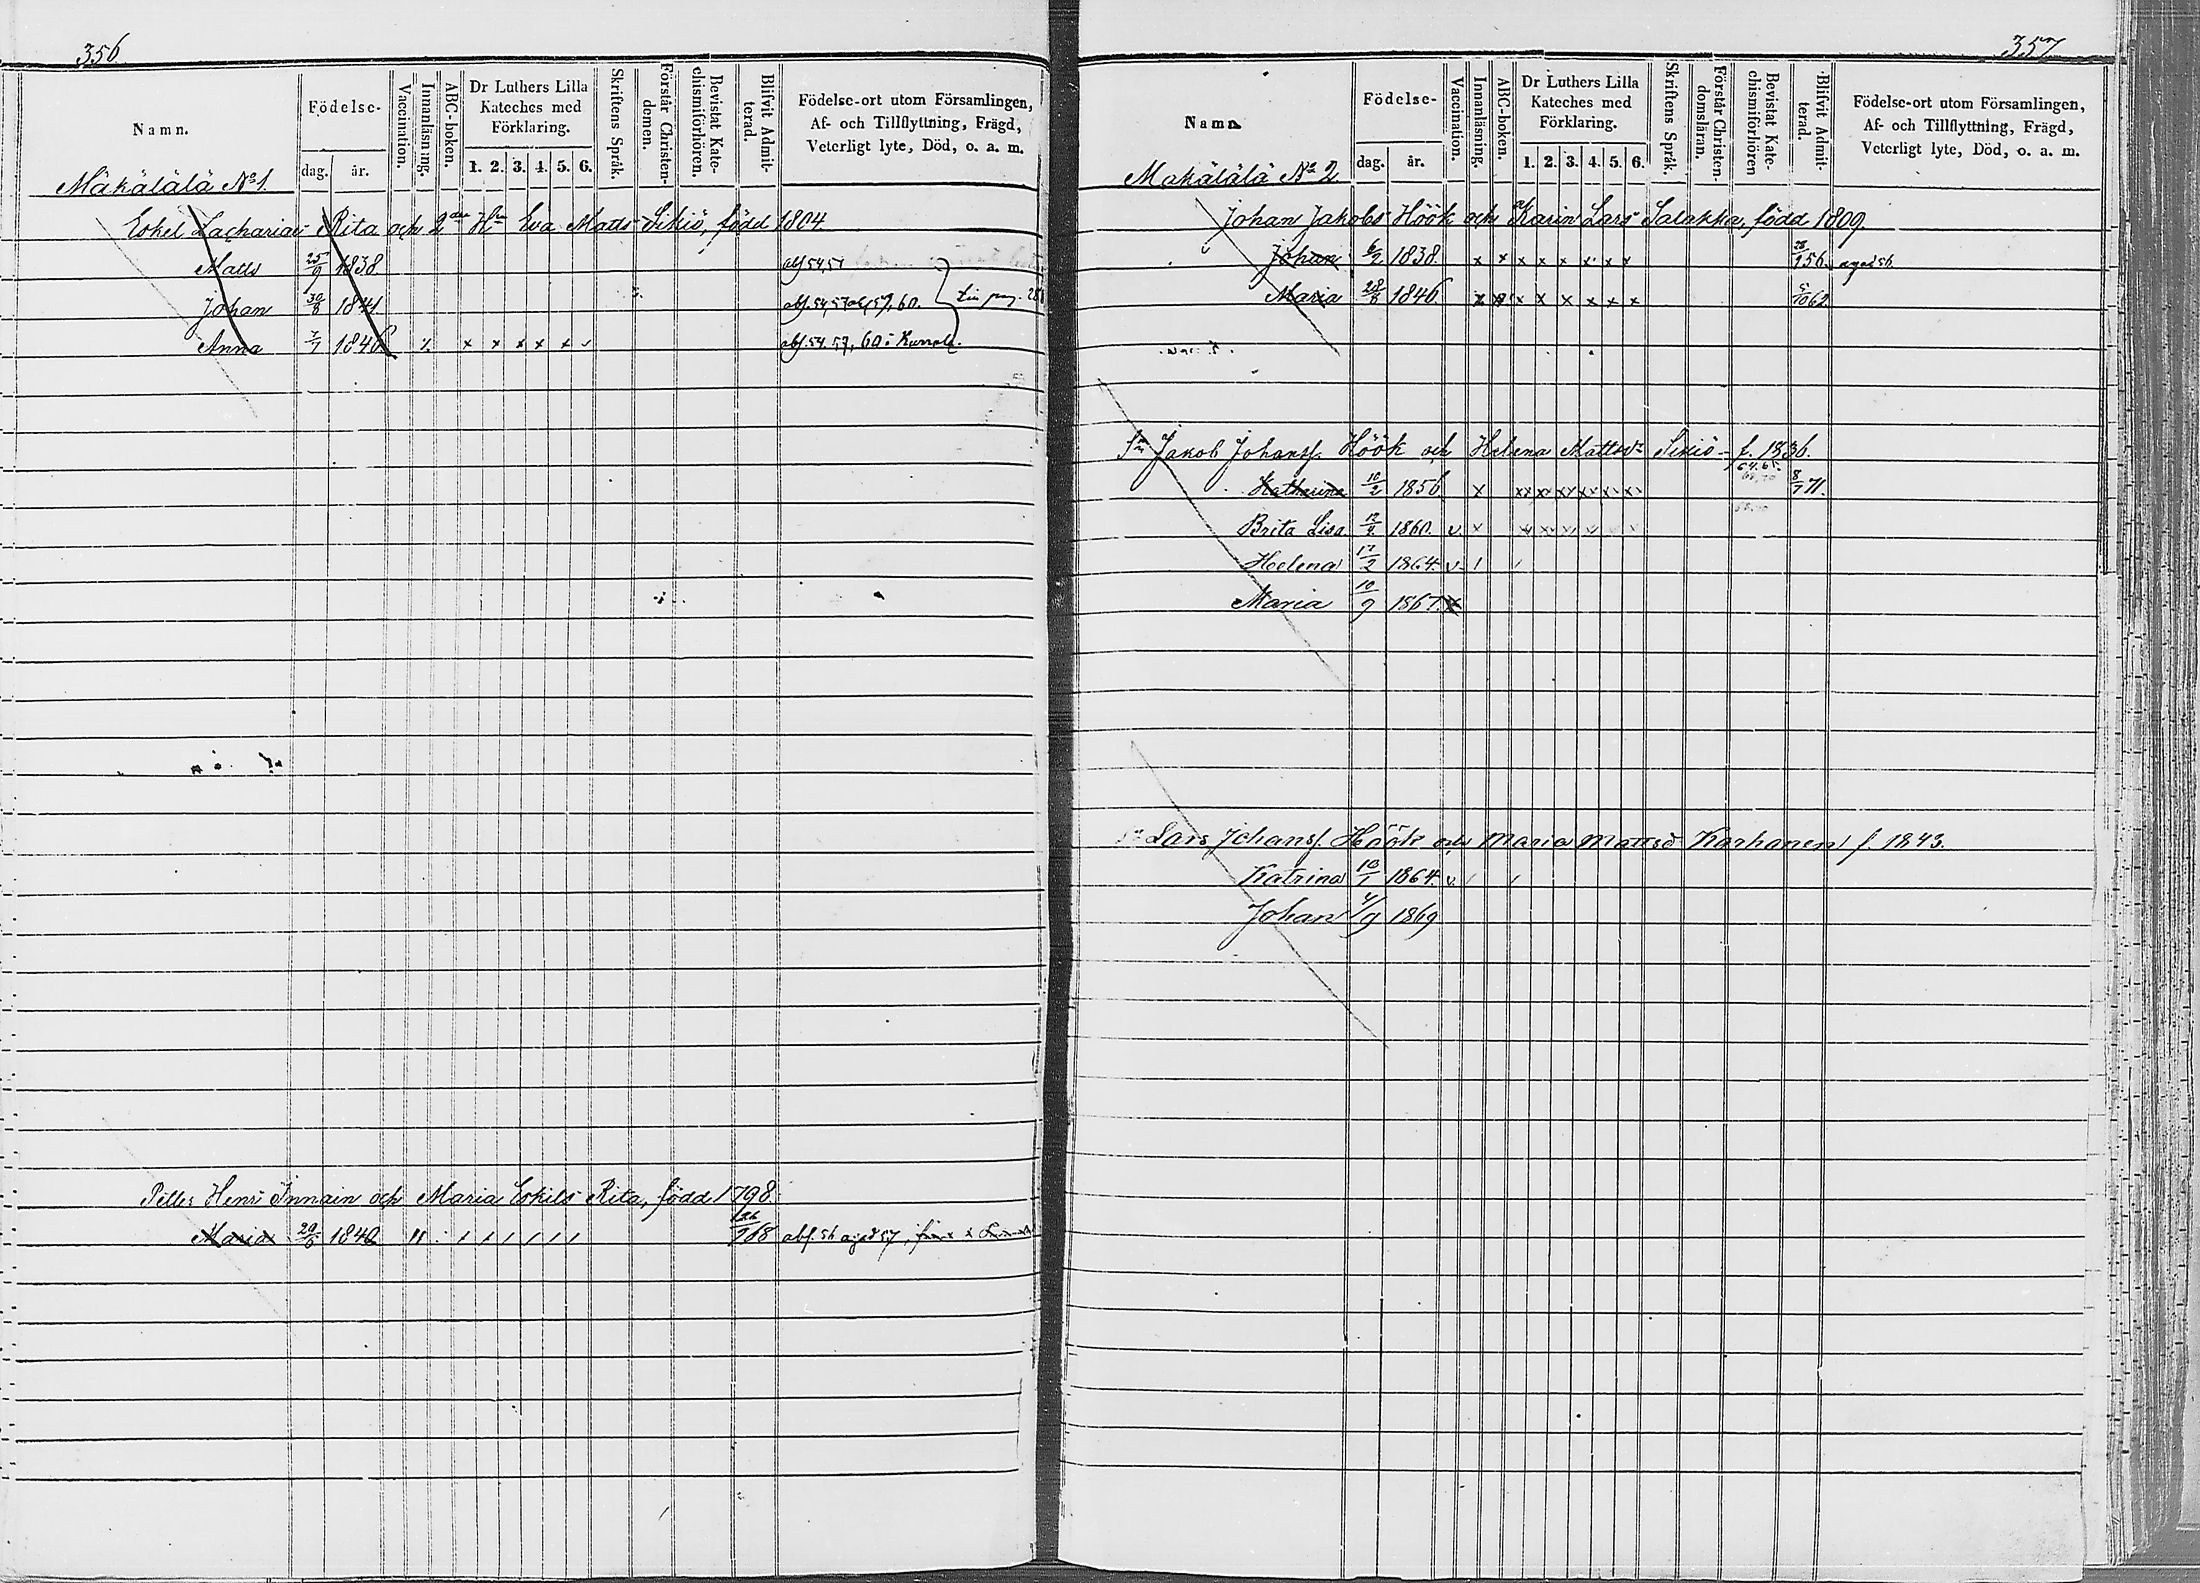 356
Namn.
Födelse-
dag.
år.
Vaccination.
Innanläsning.
ABC-boken.
Dr Luthers Lilla
Kateches med
Förklaring.
1. 2. 3. 4. 5. 6.
Skriftens Språk.
Förstår Christen-
domen.
Bevistat Kate-
chismiförhören.
Blifvit Admit-
terad.
Födelse-ort utom Församlingen,
Af- och Tillflyttning, Frägd,
Veterligt lyte, Död, o. a. m.
Mäkälälä No 1.
Eskel Zacharias Rita och 2dra Hu Eva Matts Sikiö, född 1804
Matts 25/9 1838
Johan 30/8 1841
Anna 7/7 1846 x x x x x
Pelle Henr Innain och Maria Eskils Rita, född 1798
Maria 1840
357
Namn.
Födelse-
dag.
år.
Vaccination.
Innanläsning.
ABC-boken.
Dr Luthers Lilla
Kateches med
Förklaring.
1. 2. 3. 4. 5. 6.
Skriftens Språk.
Förstår Christen-
domsläran.
Bevistat Kate-
chismiförhören
Blifvit Admit-
terad.
Födelse-ort utom Församlingen,
Af- och Tillflyttning, Frägd,
Veterligt lyte, Död, o. a. m.
Mäkälälä No 2
Johan Jakobs Höök och Karin Lars Salakka, född 1809.
Johan 6/2 1838 x x x x x x x x 56
Maria 28/8 1846 x x x x x x x x 5/10 62
Sn Jakob Johanss. Höök och Helena Mattsdr Sikiö f. 1836.
Katharina 10/2 1856 x 8/7 71.
Brita Lisa 1860. v x
Helena 17/2 1864. v
Maria 10/9 1867
Sn Lars Johanss. Höök och Maria Mattsd Karhanen f. 1843.
Katrina 10/1 1864. v
Johan 4/9 1869